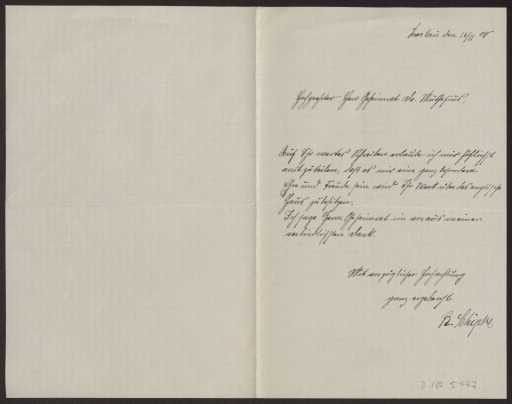 Breslau den 10/11 08
Hochgeehrter Herr Geheimrat Dr. Muthesius!
Auf Ihr wertes Schreiben erlaube ich mir höflichst
mitzuteilen, daß es mir eine ganz besondere
Ehre und Freude sein wird Ihr Werk über das englische
Haus zu besitzen.
Ich sage Herrn Geheimrat im voraus meinen
verbindlichsten Dank.
Mit vorzüglicher Hochachtung
ganz ergebenst